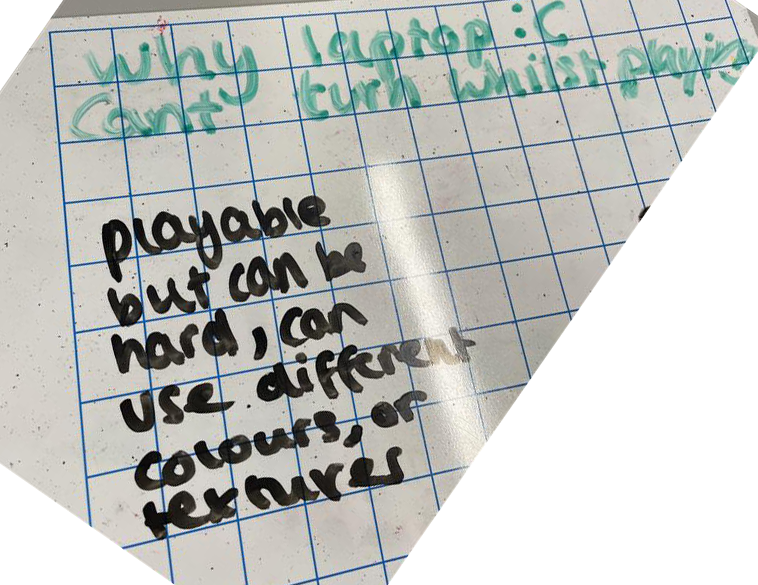 why laptop :C
Cant turn whilst playing
playable
but can be
hard, can
use different
colours, or
textures